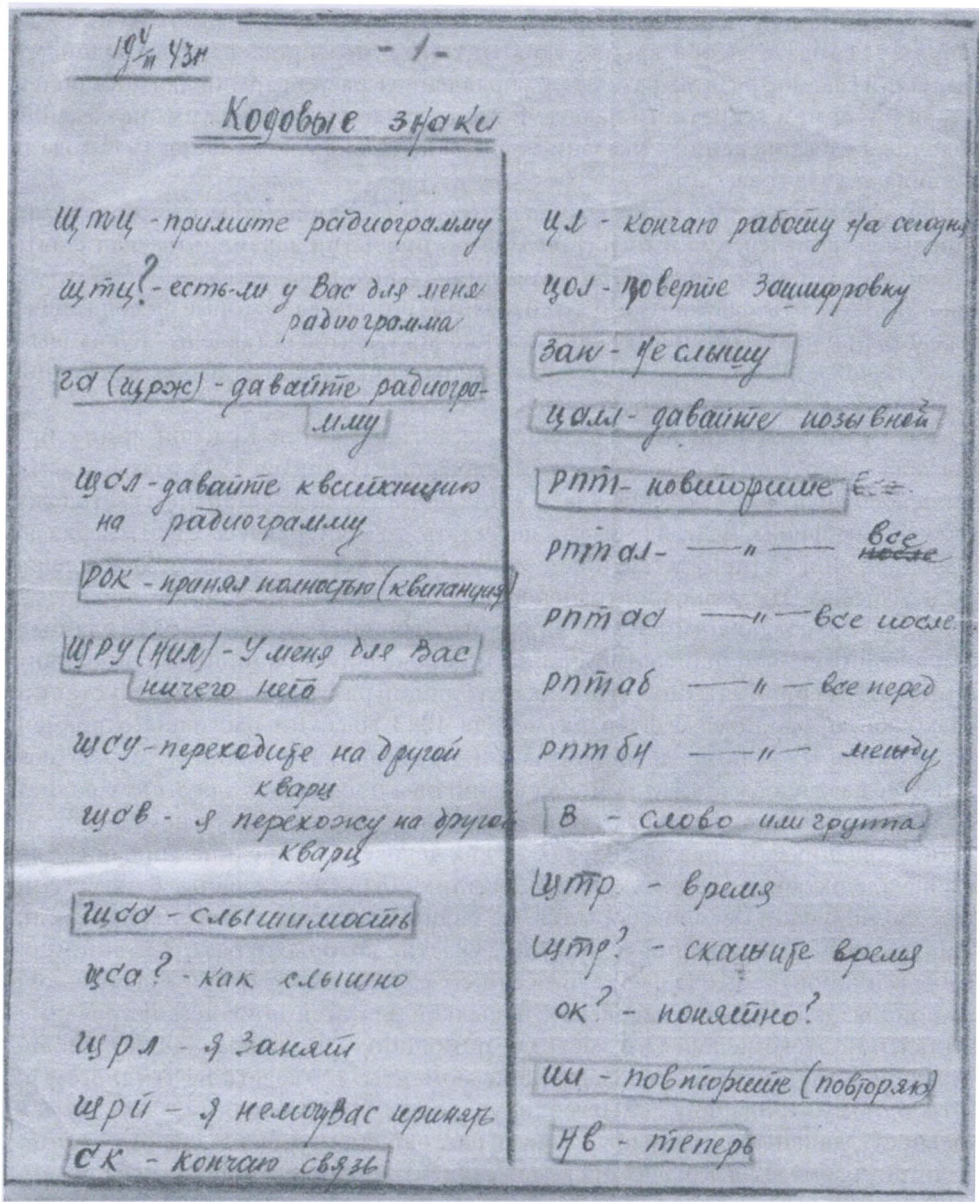 - 1 -
Кодовые знаки
щтц - примите радиограмму
щтц? - есть-ли у Вас для меня
радиограмма
га (щрж) - давайте радиогра-
мму
щсл - давайте квитанцию
на радиограмму
рок - принял полностью (квитанция)
щРУ (нил) - У меня для Вас
ничего нет
щсу - переходите на другой
кварц
щсв - я перехожу на другой
кварц
щса - слышимость
щса? - как слышно
щрл - я занят
щрй - я немогу Вас принять
ск - кончаю связь
цл - кончаю работу на сегодня
цол - проверте зашифровку
зан - не слышу
цалл - давайте позывной
рпт - повторите
рптал - — " — все
рптаа — " — все после
рптаб — " — все перед
рптбн — " — между
В - слово или группа
щтр - время
щтр? - скажите время
ок? - понятно?
ии - повторите (повторяю)
нв - теперь